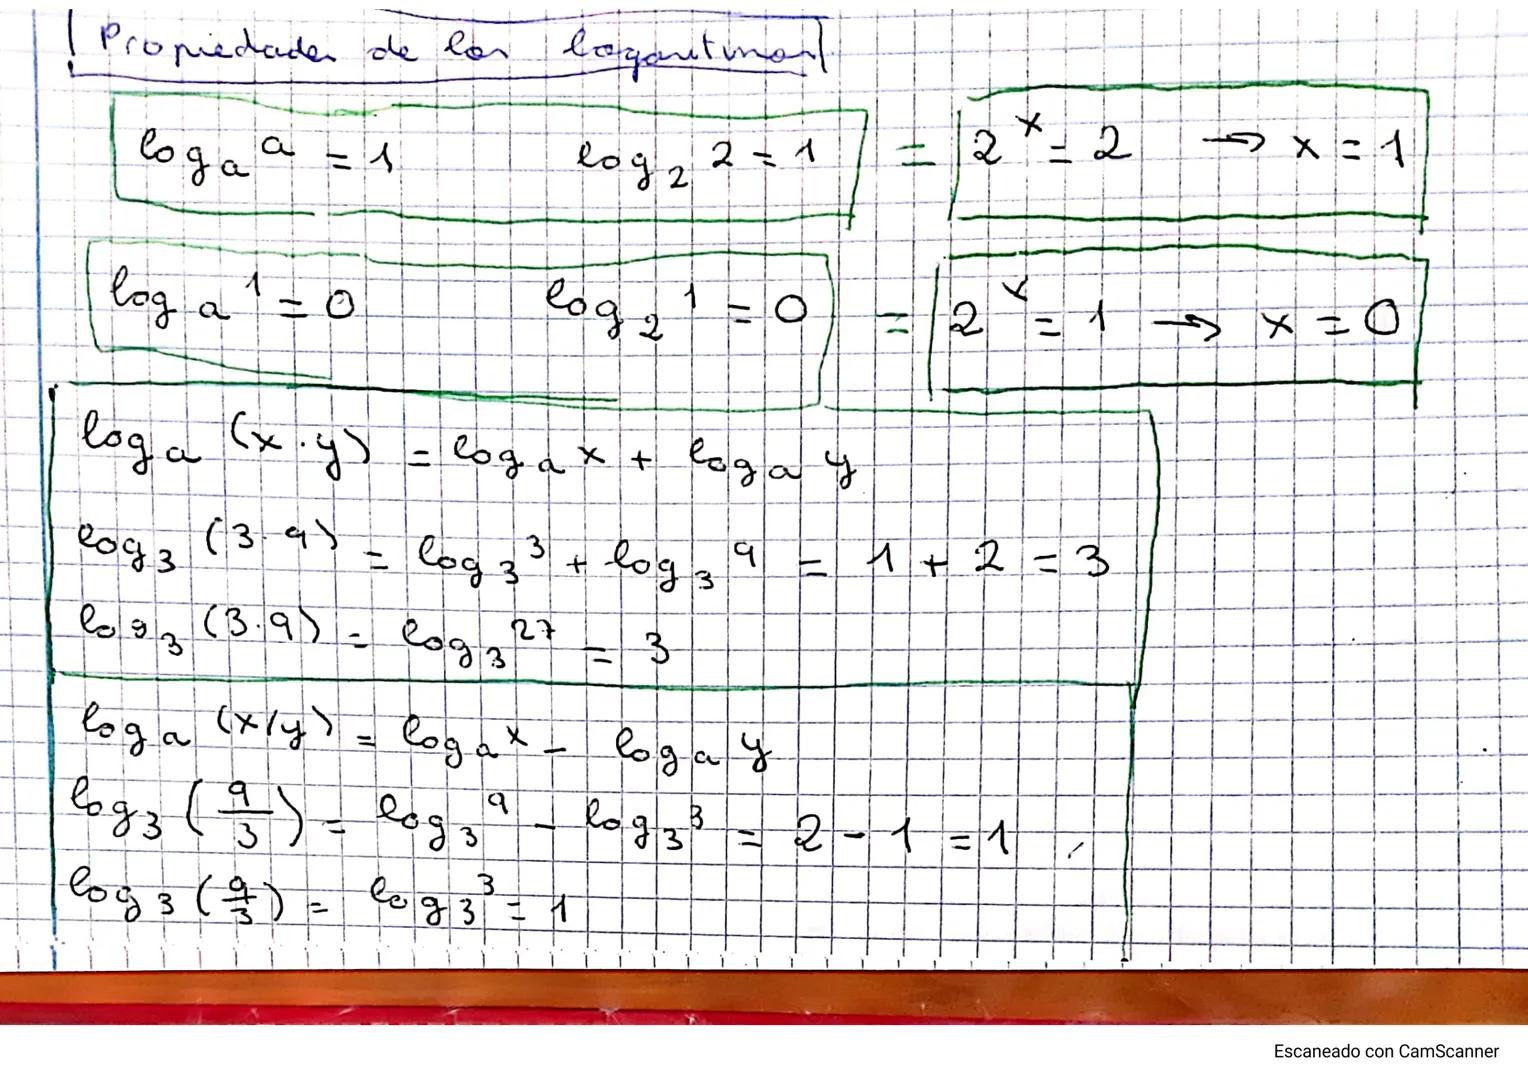 Propiedades de los logaritmos
logₐ a = 1    log₂ 2 = 1 = 2ˣ = 2 → x = 1
logₐ 1 = 0    log₂ 1 = 0 = 2ˣ = 1 → x = 0
logₐ (x·y) = logₐ x + logₐ y
log₃ (3·9) = log₃ 3 + log₃ 9 = 1 + 2 = 3
log₃ (3·9) = log₃ 27 = 3
logₐ (x/y) = logₐ x - logₐ y
log₃ (9/3) = log₃ 9 - log₃ 3 = 2 - 1 = 1
log₃ (9/3) = log₃ 3 = 1
Escaneado con CamScanner